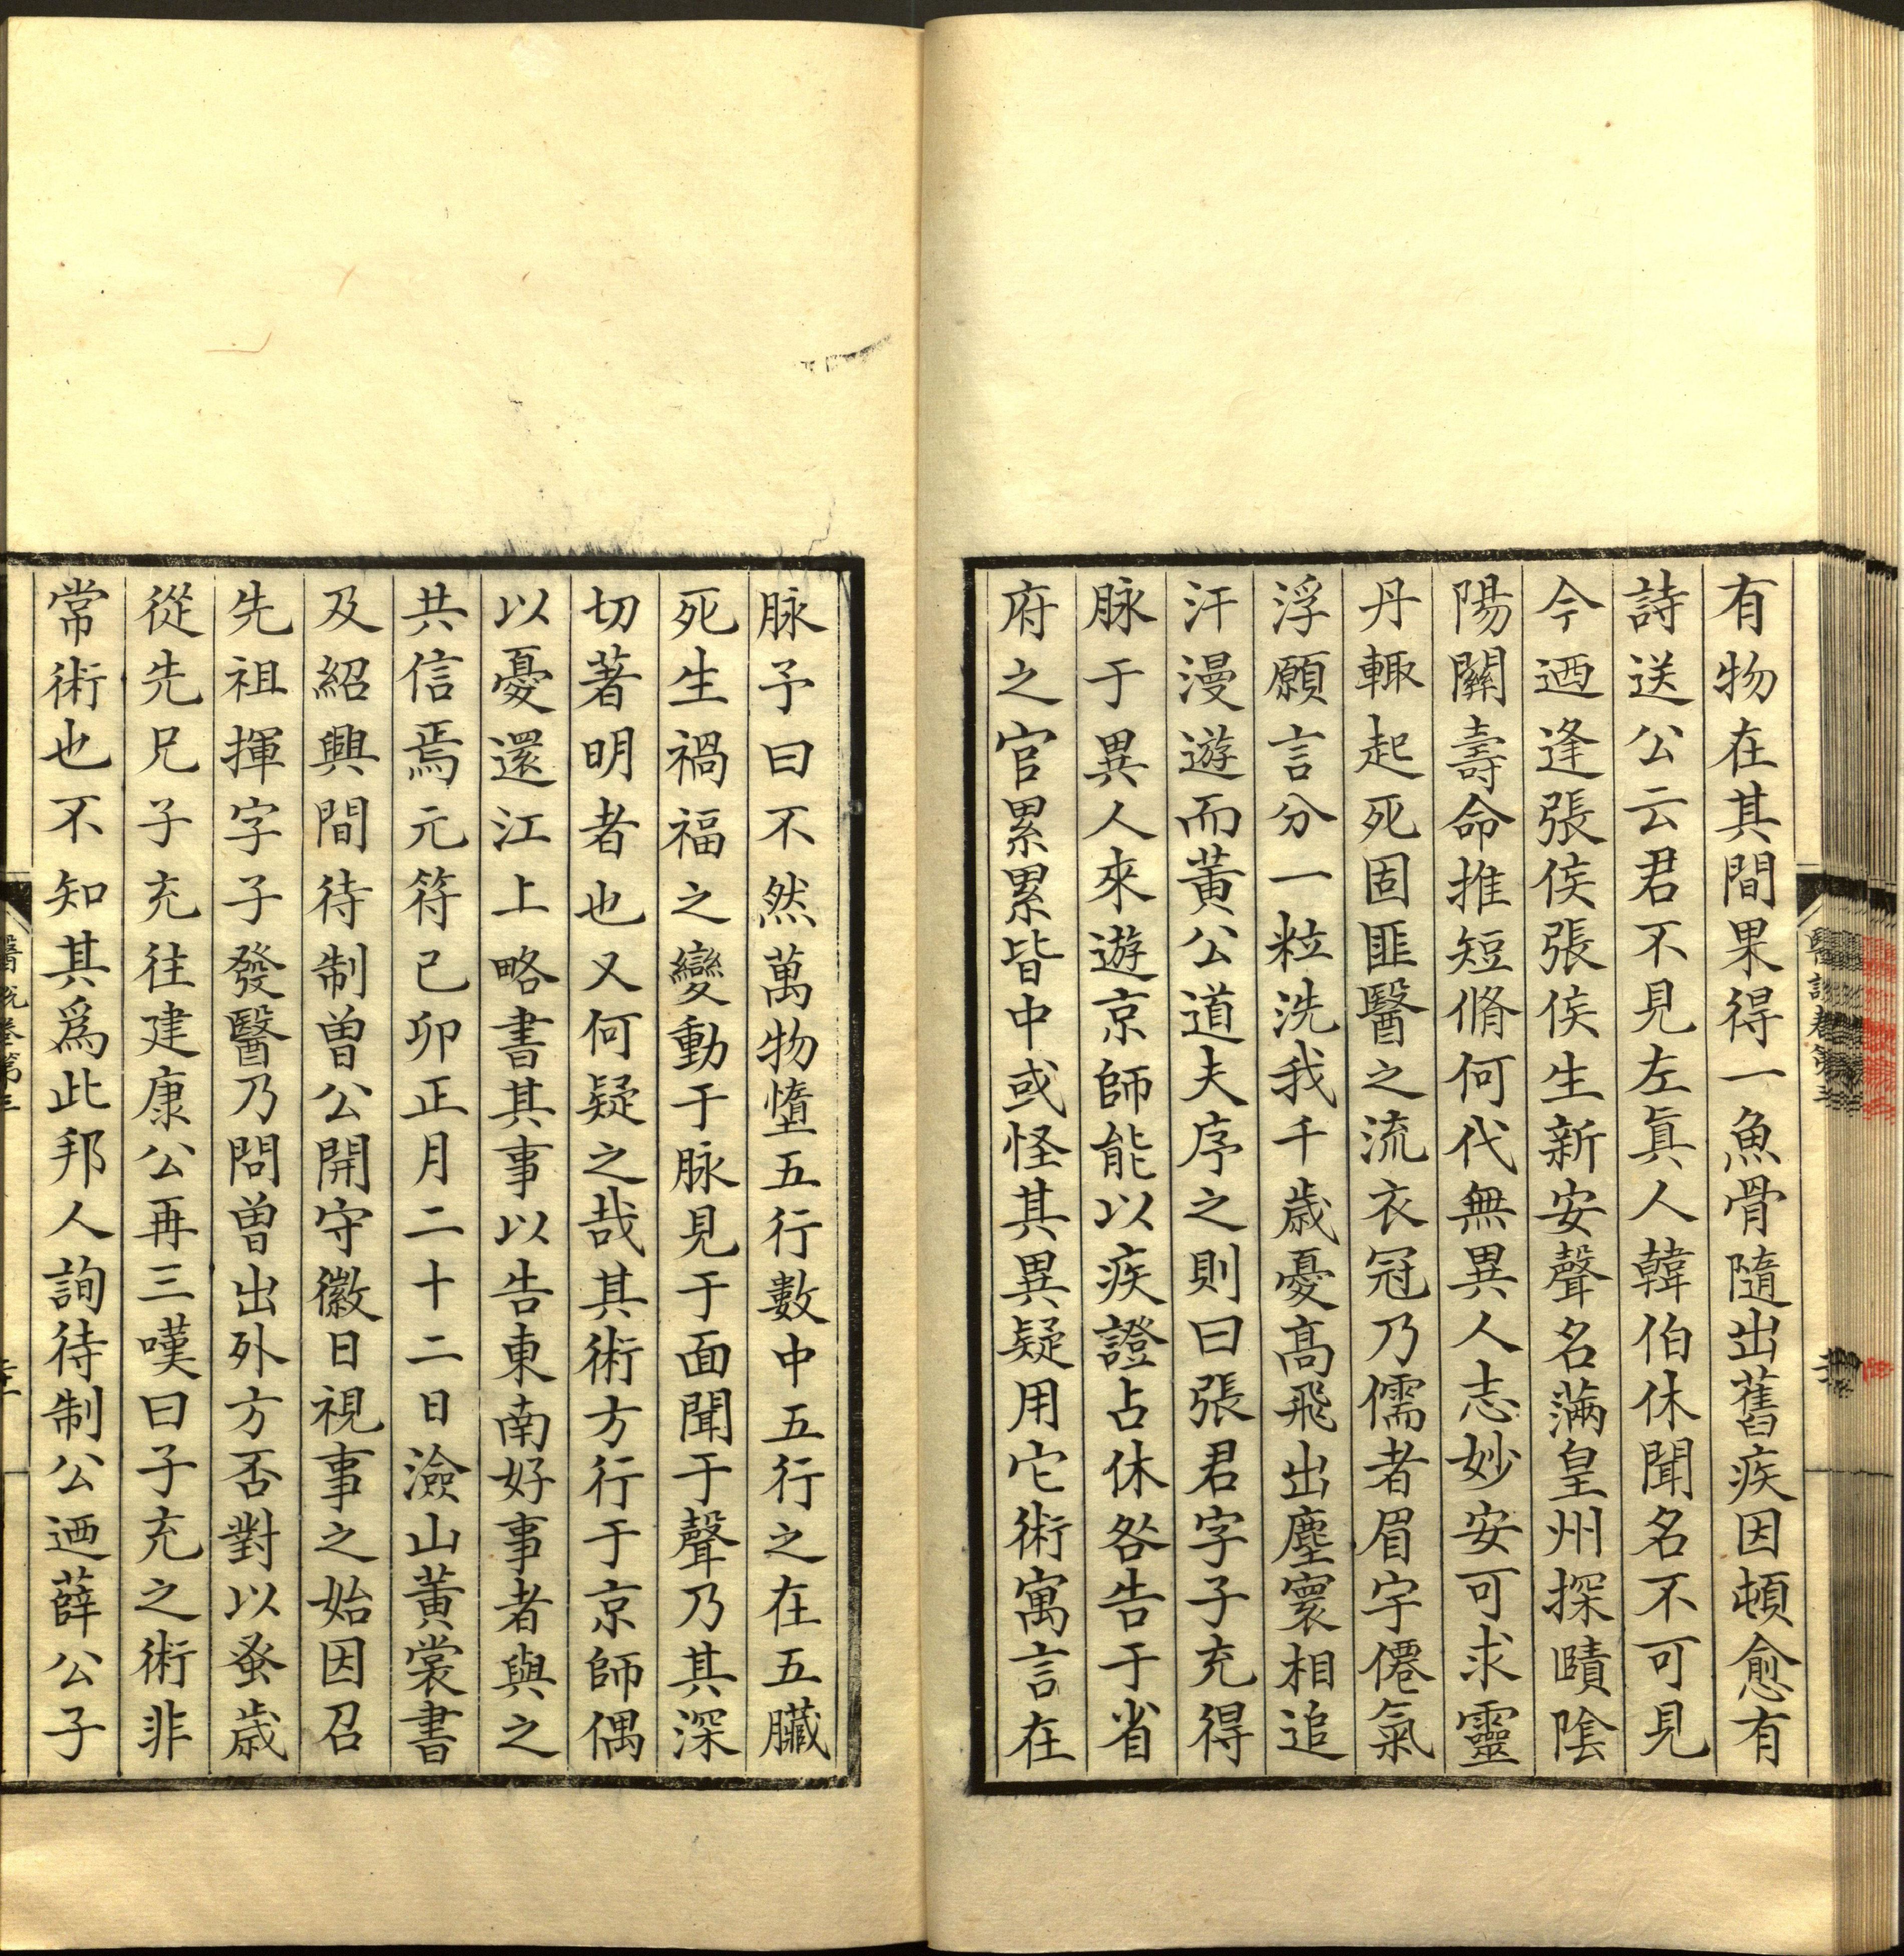 有物在其間果得一魚骨隨出舊疾因頓愈有
詩送公云君不見左眞人韓伯休聞名不可見
今迺逢張侯張侯生新安聲名滿皇州探賾陰
陽關壽命推短脩何代無異人志妙安可求靈
丹輙起死固匪醫之流衣冠乃儒者眉宇僊氣
浮願言分一粒洗我千歳憂髙飛出塵寰相追
汗漫遊而黃公道夫序之則曰張君字子充得
脉于異人來遊京師能以疾證占休咎告于省
府之官累累皆中或怪其異疑用它術寓言在
脉予曰不然萬物墮五行數中五行之在五臟
死生禍福之變動于脉見于面聞于聲乃其深
切著明者也又何疑之哉其術方行于京師偶
以憂還江上略書其事以告東南好事者與之
共信焉元符己卯正月二十二日澰山黃裳書
及紹興間待制曾公開守徽日視事之始因召
先祖揮字子發醫乃問曾出外方否對以蚤歳
從先兄子充往建康公再三嘆曰子充之術非
常術也不知其爲此邦人詢待制公迺薛公子
醫說卷第三